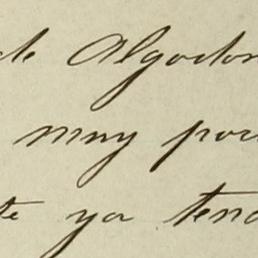 de Algodon
muy poc
te ya tend